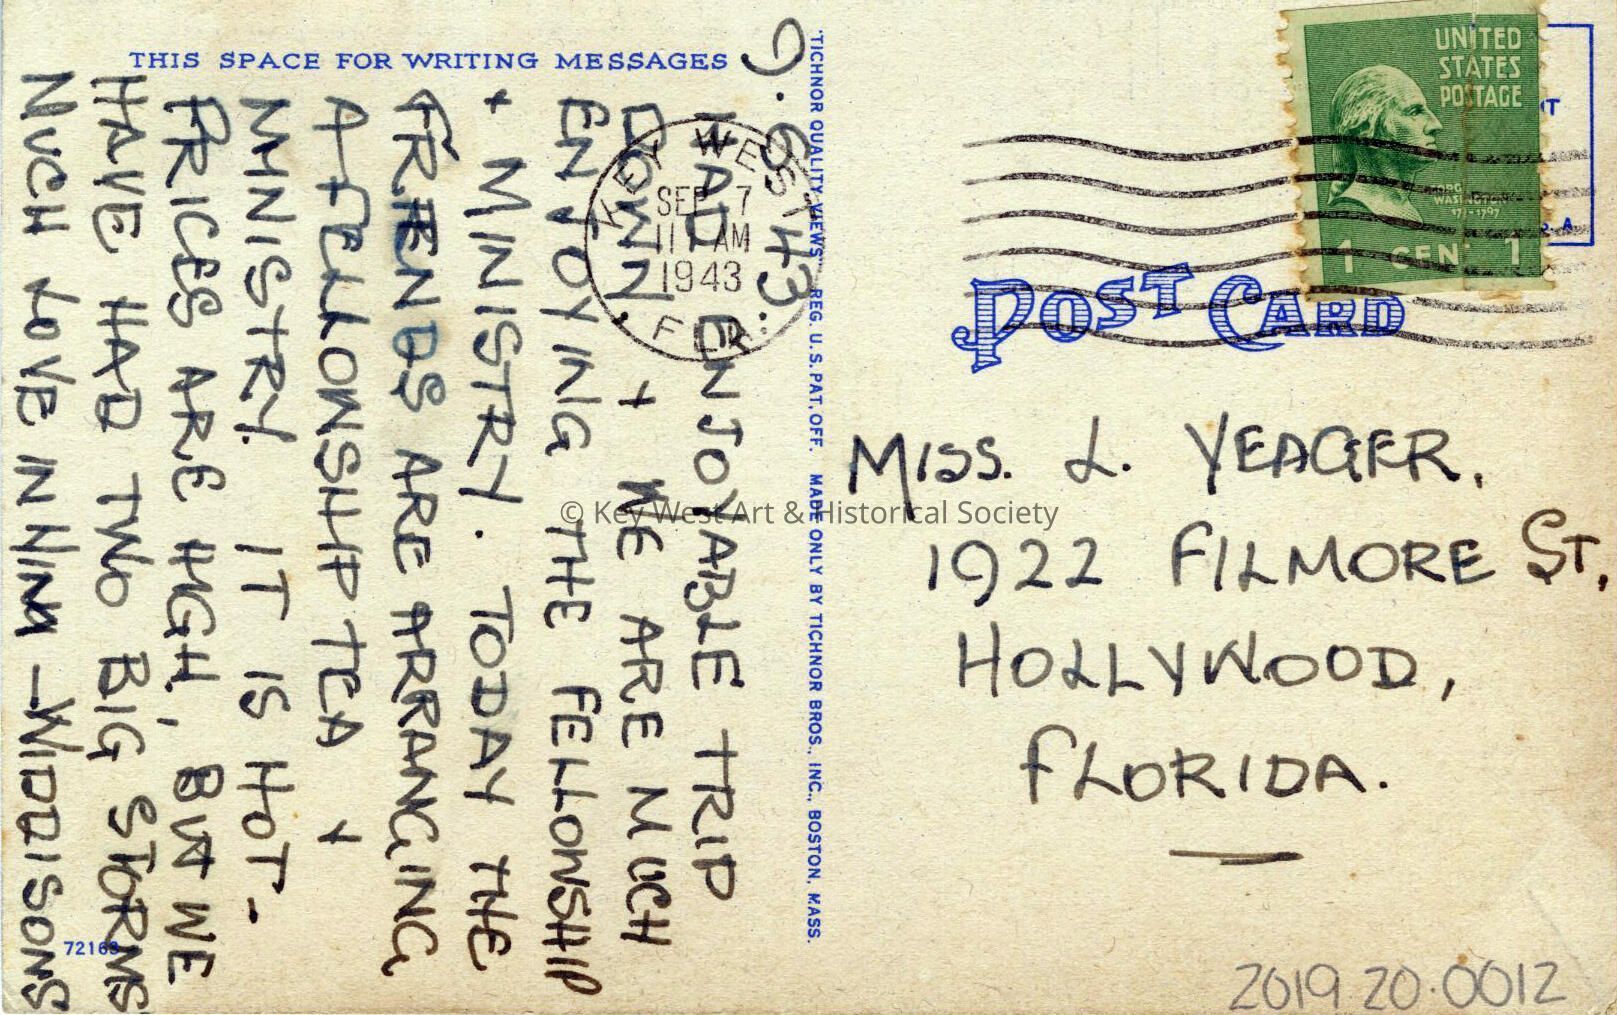 THIS SPACE FOR WRITING MESSAGES
9.6.43.
HAD ENJOYABLE TRIP
DOWN. + WE ARE MUCH
ENJOYING THE FELLOWSHIP
+ MINISTRY. TODAY THE
FRIENDS ARE ARRANGING
A FELLOWSHIP TEA +
MINISTRY. IT IS HOT-
PRICES ARE HIGH, BUT WE
HAVE HAD TWO BIG STORMS
MUCH LOVE IN HIM -WIDDISONS
72163
KEY WEST
SEP 7
11 AM
1943
FLA.
"TICHNOR QUALITY VIEWS" REG. U.S. PAT. OFF. MADE ONLY BY TICHNOR BROS., INC., BOSTON, MASS.
UNITED
STATES
POSTAGE
WASHINGTON
1 CENT 1
POST CARD
MISS. L. YEAGER,
1922 FILMORE ST,
HOLLYWOOD,
FLORIDA.
© Key West Art & Historical Society
2019 20.0012